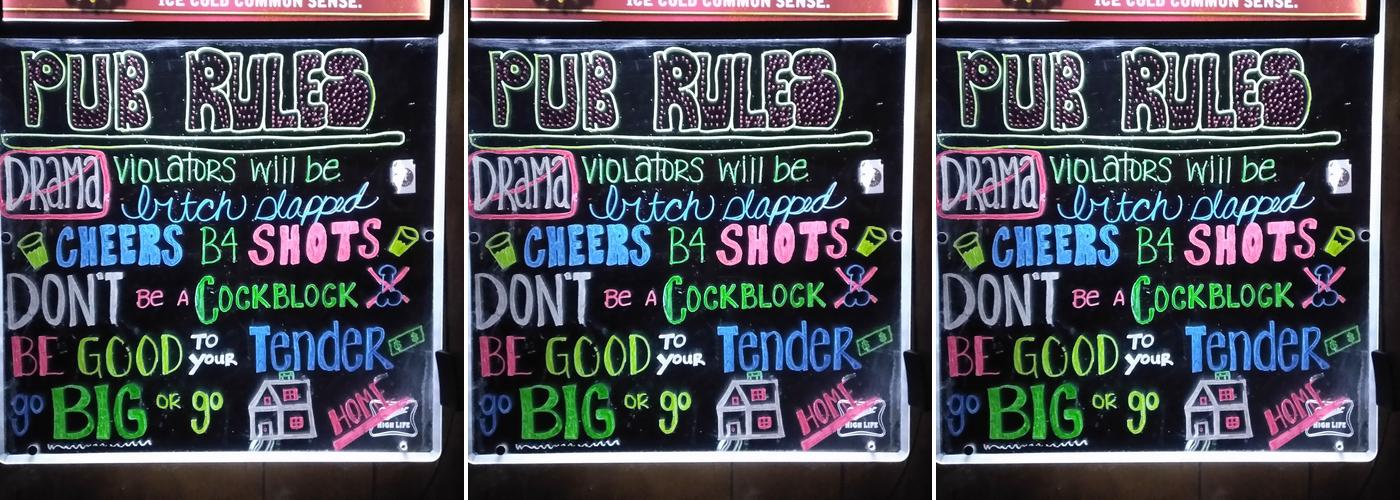 ICE COLD COMMON SENSE.
PUB RULES
DRAMA VIOLATORS WILL BE
bitch slapped
CHEERS B4 SHOTS
DON'T BE A COCKBLOCK
BE GOOD TO YOUR TENDER
go BIG OR go HOME
HIGH LIFE
ICE COLD COMMON SENSE.
PUB RULES
DRAMA VIOLATORS WILL BE
bitch slapped
CHEERS B4 SHOTS
DON'T BE A COCKBLOCK
BE GOOD TO YOUR TENDER
go BIG OR go HOME
HIGH LIFE
ICE COLD COMMON SENSE.
PUB RULES
DRAMA VIOLATORS WILL BE
bitch slapped
CHEERS B4 SHOTS
DON'T BE A COCKBLOCK
BE GOOD TO YOUR TENDER
go BIG OR go HOME
HIGH LIFE